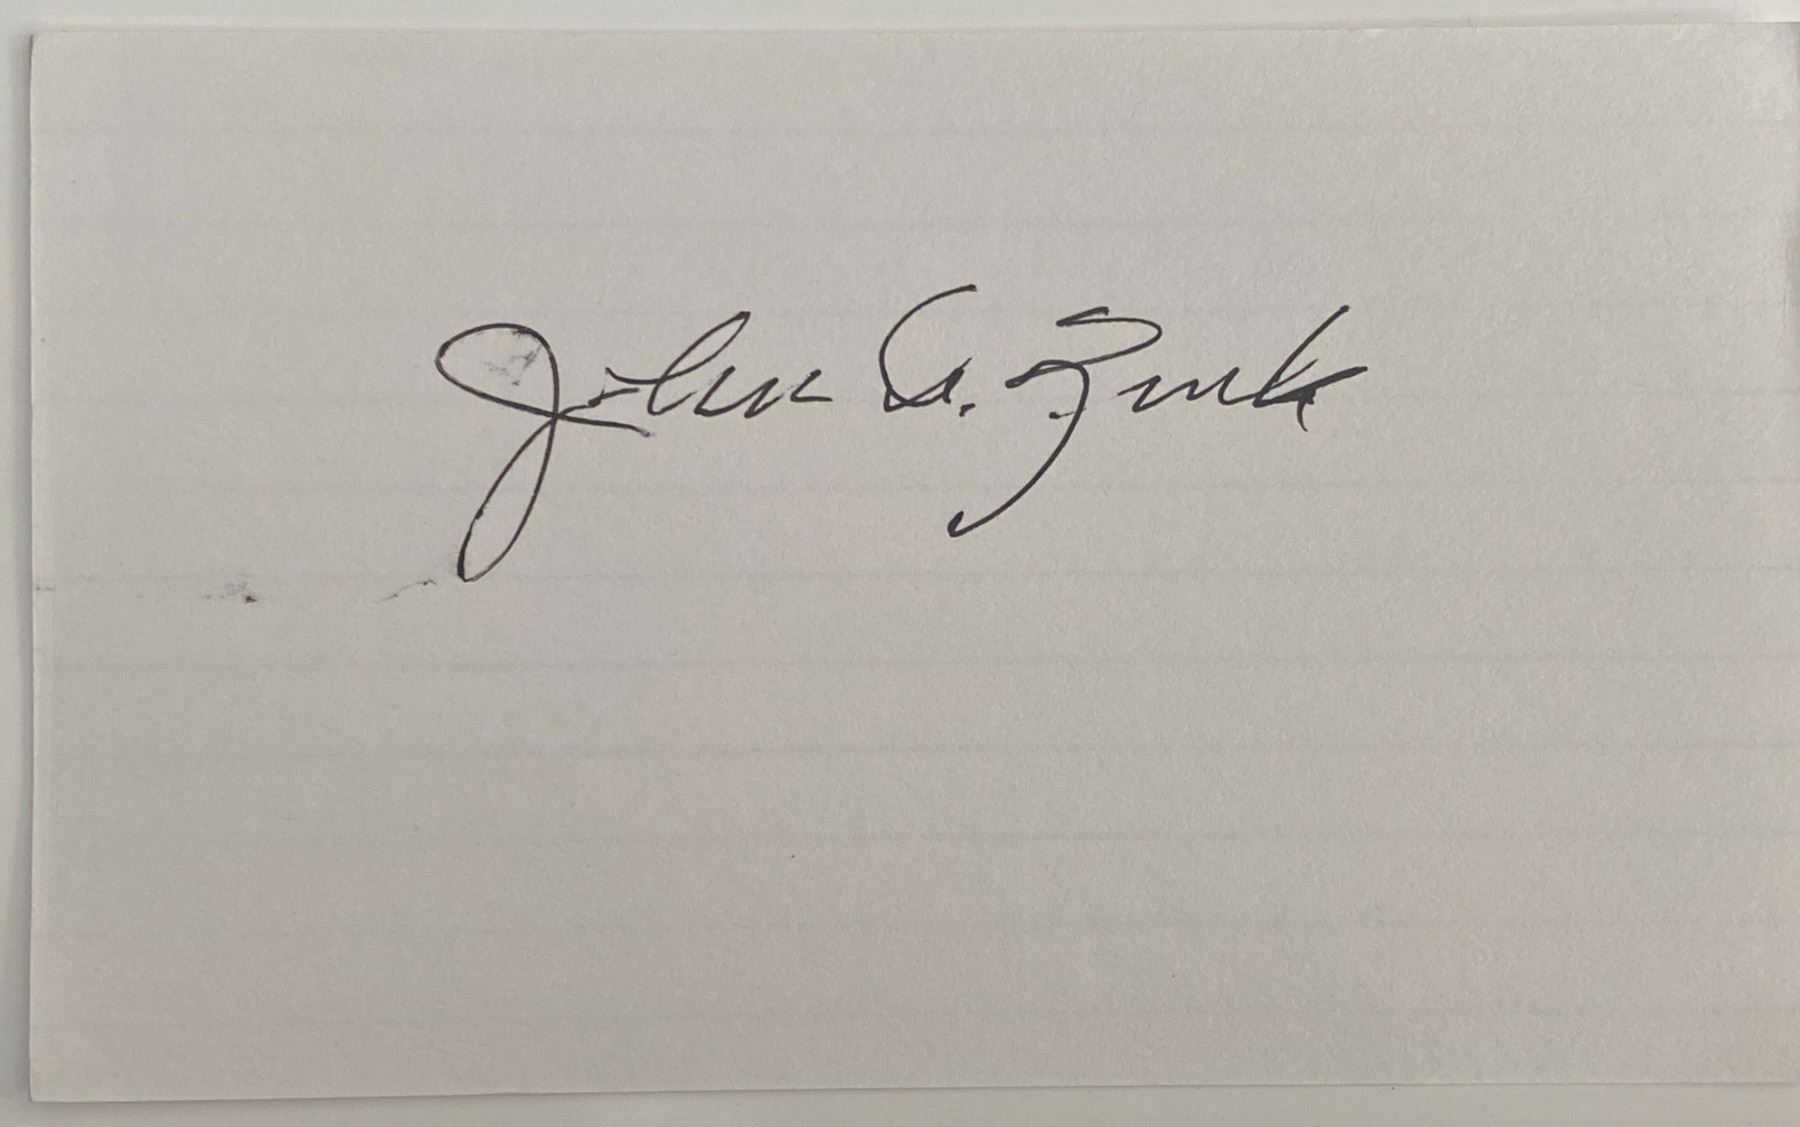 John A. Zink